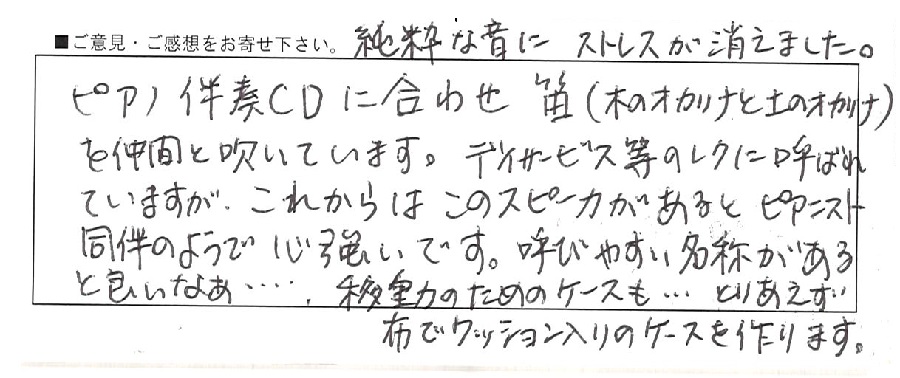 ■ご意見・ご感想をお寄せ下さい。 純粋な音に ストレスが消えました。
ピアノ伴奏CDに合わせ 笛(木のオカリナと土のオカリナ)
を仲間と吹いています。デイサービス等のレクに呼ばれ
ていますが、これからはこのスピーカがあるとピアニスト
同伴のようで心強いです。呼びやすい名称がある
と良いなあ・・・・. 移動のためのケースも… とりあえず
布でクッション入りのケースを作ります。